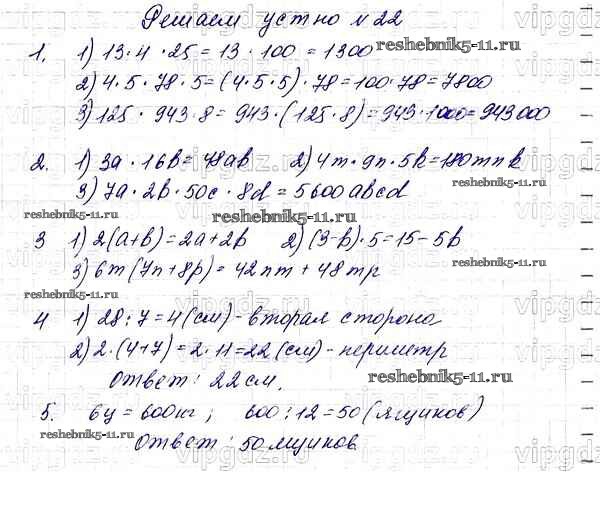 Решаем устно №22
1. 1) 13·4·25=13·100=1300
2) 4·5·78·5=(4·5·5)·78=100·78=7800
3) 125·943·8=943·(125·8)=943·1000=943000
2. 1) 3a·16b=48ab 2) 4m·9n·5k=180mnk
3) 7a·2b·50c·8d=5600abcd
3 1) 2(a+b)=2a+2b 2) (3-b)·5=15-5b
3) 6m(7n+8p)=42nm+48mp
4 1) 28:7=4(см)-вторая сторона
2) 2·(4+7)=2·11=22(см)-периметр
Ответ: 22см.
5. 6ц=600кг; 600:12=50(ящиков)
Ответ: 50 ящиков
reshebnik5-11.ru
reshebnik5-11.ru
reshebnik5-11.ru
reshebnik5-11.ru
reshebnik5-11.ru
reshebnik5-11.ru
reshebnik5-11.ru
reshebnik5-11.ru
reshebnik5-11.ru
vipgdz.ru